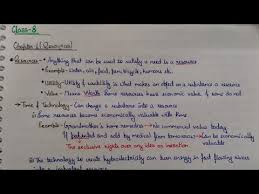 Class-8
Chapter 1 (Resources)
Resources - Anything that can be used to satisfy a need is a resource
Example - Water, air, food, pen, bicycle, humans etc.
Utility - Utility or usability is what makes an object or substance a resource
Value - Means Worth some resources have economic value & some do not
Time & Technology - Can change a substance into a resource
Some resources become economically valuable with time
Example - Grandmother's home remedies → No commercial value today
If patented and sold by medical firms tomorrow → Can be economically valuable
The exclusive right over any idea or invention
The technology to create hydroelectricity can turn energy in fast flowing rivers